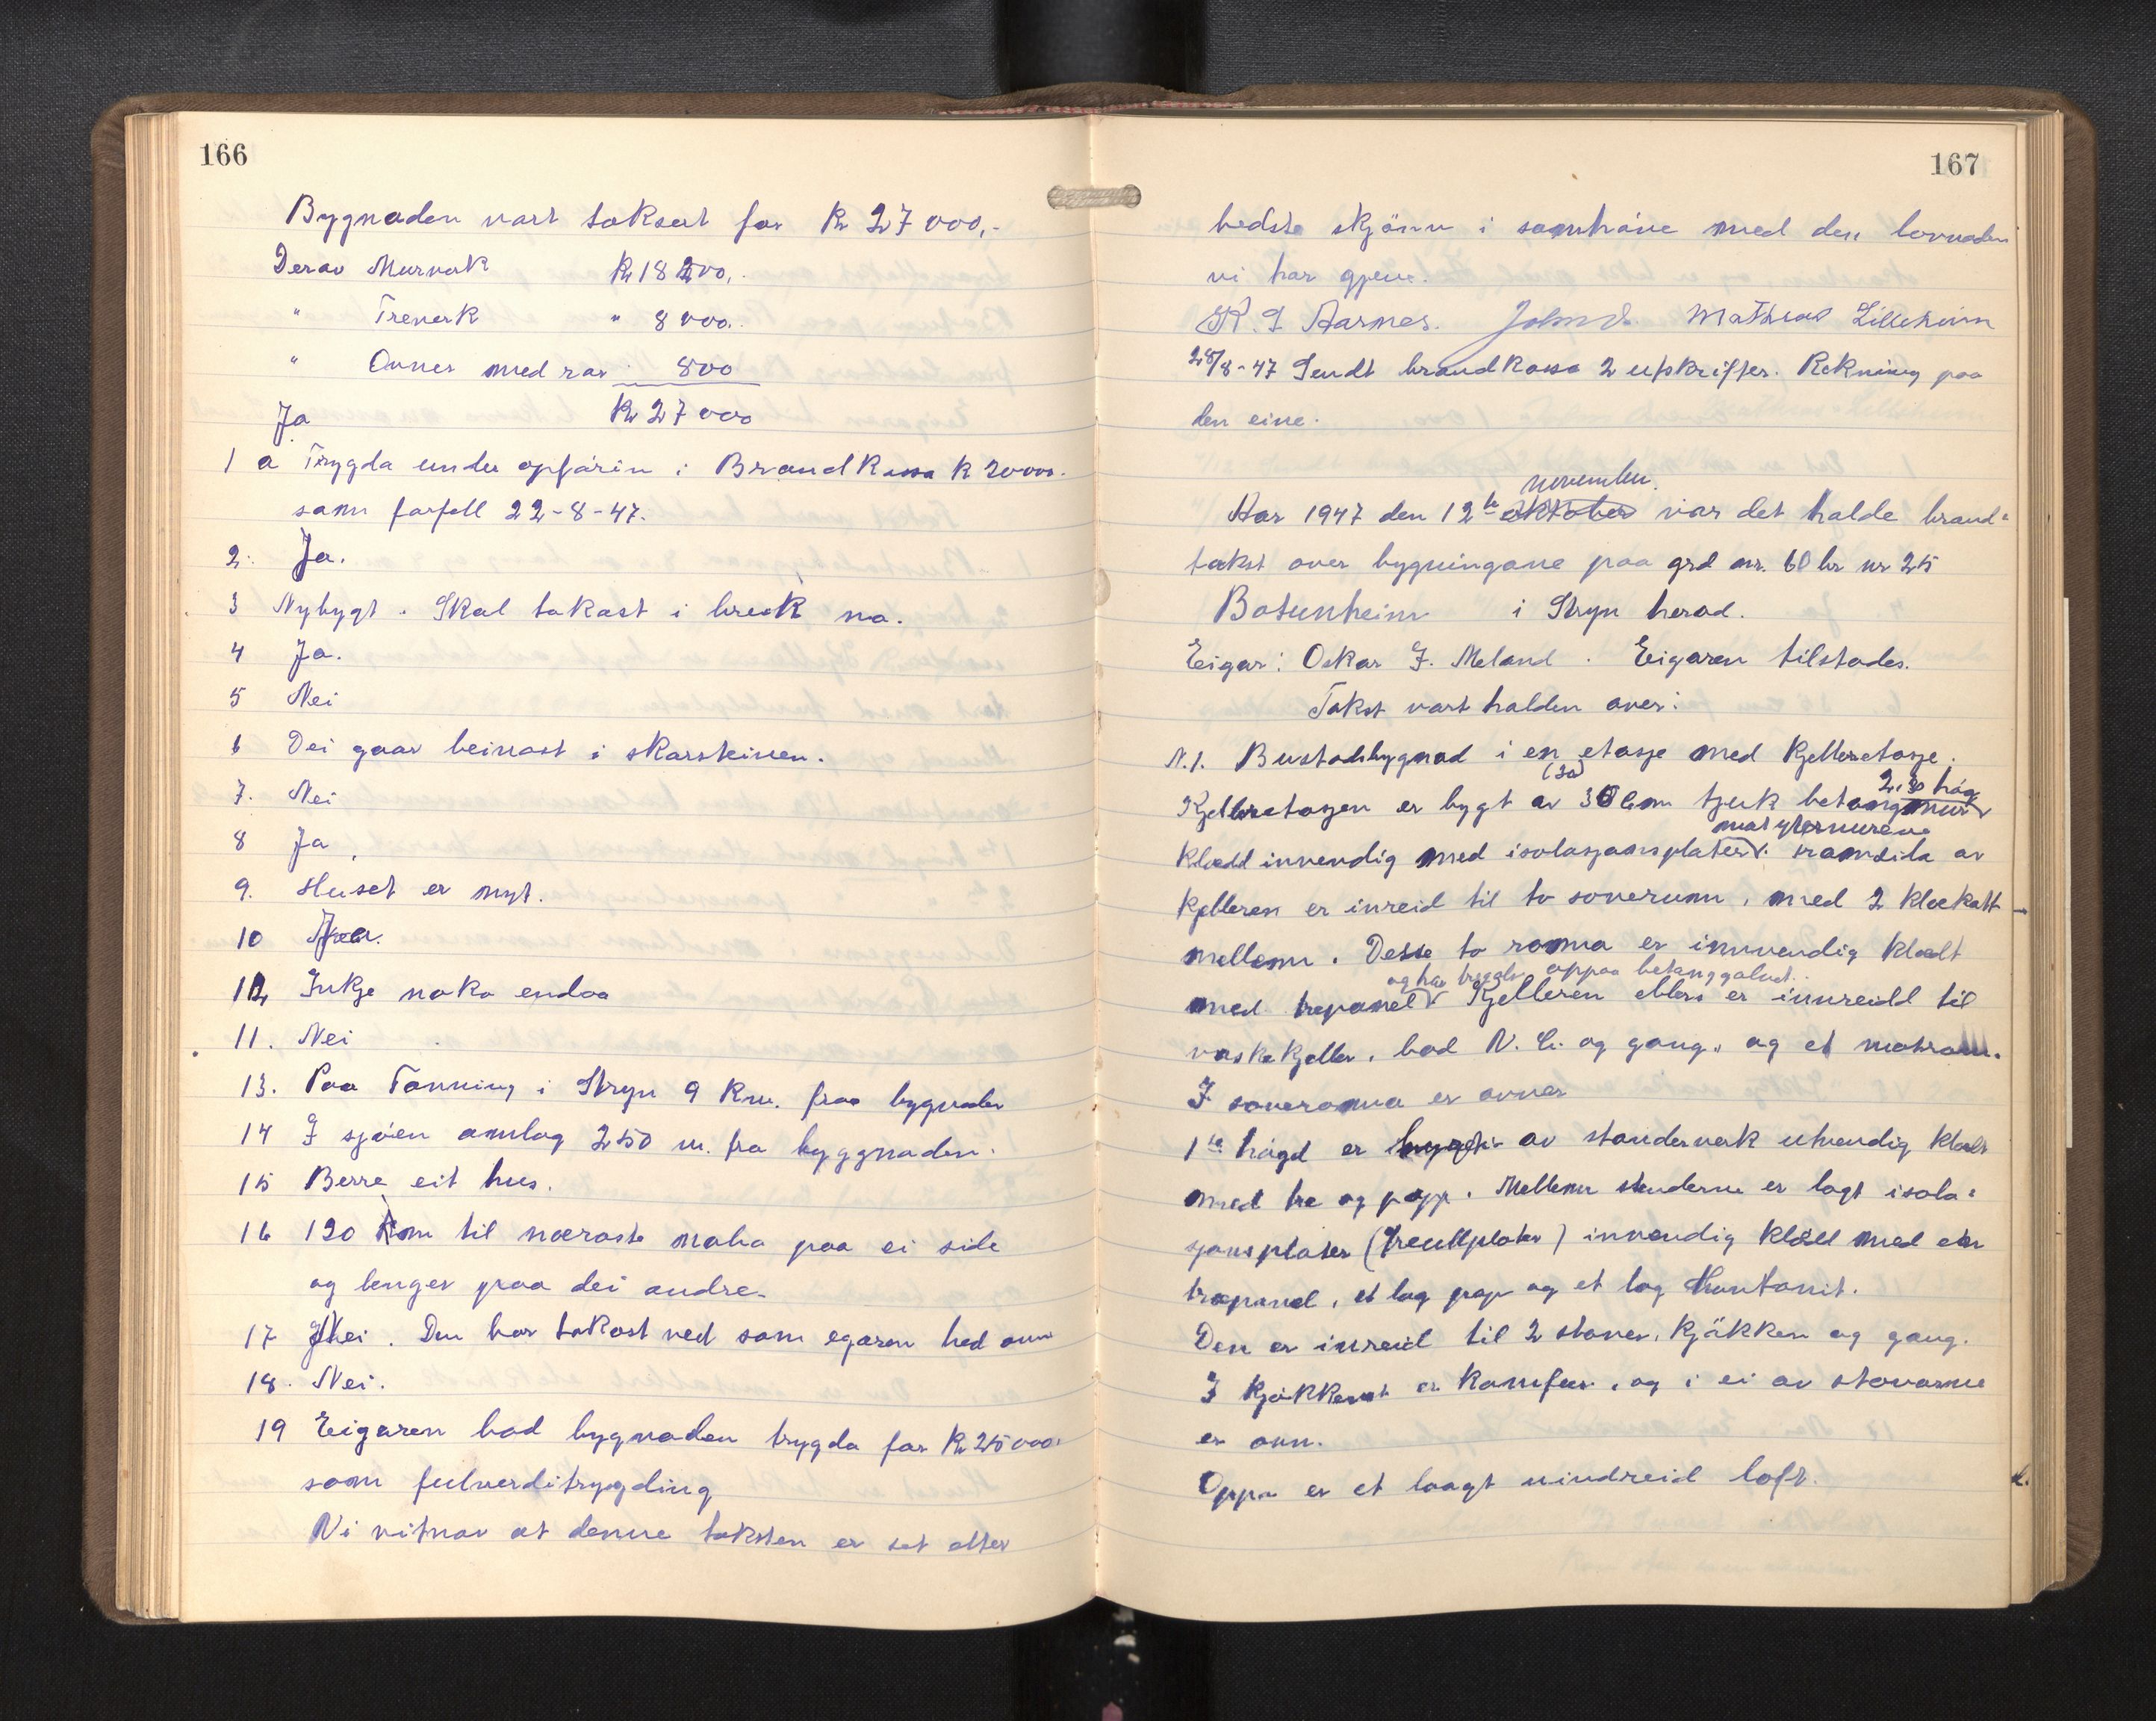 166
Bygnaden vart taksert for Kr 27 000,-
Derav Murverk Kr 18 200,-
" Treverk " 8 000.
" Ovner med rør 800
Ja Kr 27 000
1 a Trygda under opførin i Brandkassa Kr 20000.
som forfell 22-8-47.
2. Ja.
3 Nybygt. Skal takast i bruk no.
4 Ja.
5 Nei
6 Dei gaar beinast i skorsteinen.
7. Nei
8 Ja.
9. Huset er nyt.
10
12 Inkje noko endaa
11. Nei
13. Paa Tonning i Stryn 9 km. fraa bygnaden
14 I sjøen omlag 250 m. fra byggnaden.
15 Berre eit hus.
16 120 m til næraste naba paa ei side
og lenger paa dei andre.
17 Nei. Den bør takast ved som egaren hed
18. Nei.
19 Eigaren bad bygnaden trygda for Kr 25000.
som fulverditrygding
Vi vitnar at denne taksten er set etter
167
bedste skjönn i samhöve med den lovnaden
vi har gjeve.
K. J Aarnes. Mathias Lilleheim
28/8-47 Sendt brandkassa 2 utskrifter. Rekning paa
den eine.
november.
Aar 1947 den 12te oktober var det halde brand=
takst over bygningane paa grd nr. 60 br nr 25
Botunheim i Stryn herad.
Eigar: Oskar J. Meland. Eigaren tilstades.
Takst vart halden over:
N.1. Bustadsbygnad i en etasje med Kjelleretasje.
(30) 2,30 høg
Kjelleretasjen er bygt av 30 cm tjuk betongmur
mot yttermurene
klædd innvendig med isolasjonsplater. Framsida av
Kjelleren er inreid til to soverum, med 2 klekott
mellem. Desse to romma er innvendig klædt
og har tregolv oppaa betonggolvet.
med trepanel Kjelleren ellers er innreidd til
vaskekjeller, bad V. C. og gang, og et matrom.
I soveromma er ovner
1ste høgd er bygt av standerverk utvendig klædt
med tre og papp. Mellem stenderne er lagt isola=
sjonsplater (Treullplater) invendig klædd med ein
trepanel, et lag pap og et lag Huntonit.
Den er inreid til 2 stover, Kjøkken og gang.
I Kjøkkenet er Komfyr, og i ei av stovarne
er omn.
Oppe er et laagt uindreid loft.